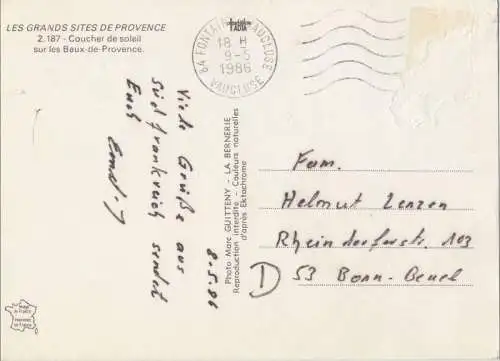 LES GRANDS SITES DE PROVENCE
2.187 - Coucher de soleil
sur les Baux-de-Provence.
84 FONTAINE VAUCLUSE
18 H
9-5
1986
VAUCLUSE
8.5.86
Viele Grüße aus
Südfrankreich sendet
Euch
Photo Marc GUITTENY - LA BERNERIE
Reproduction interdite - Couleurs naturelles
d'après Ektachrome
Fam.
Helmut Lenzen
Rheindorferstr. 103
D 53 Bonn-Beuel